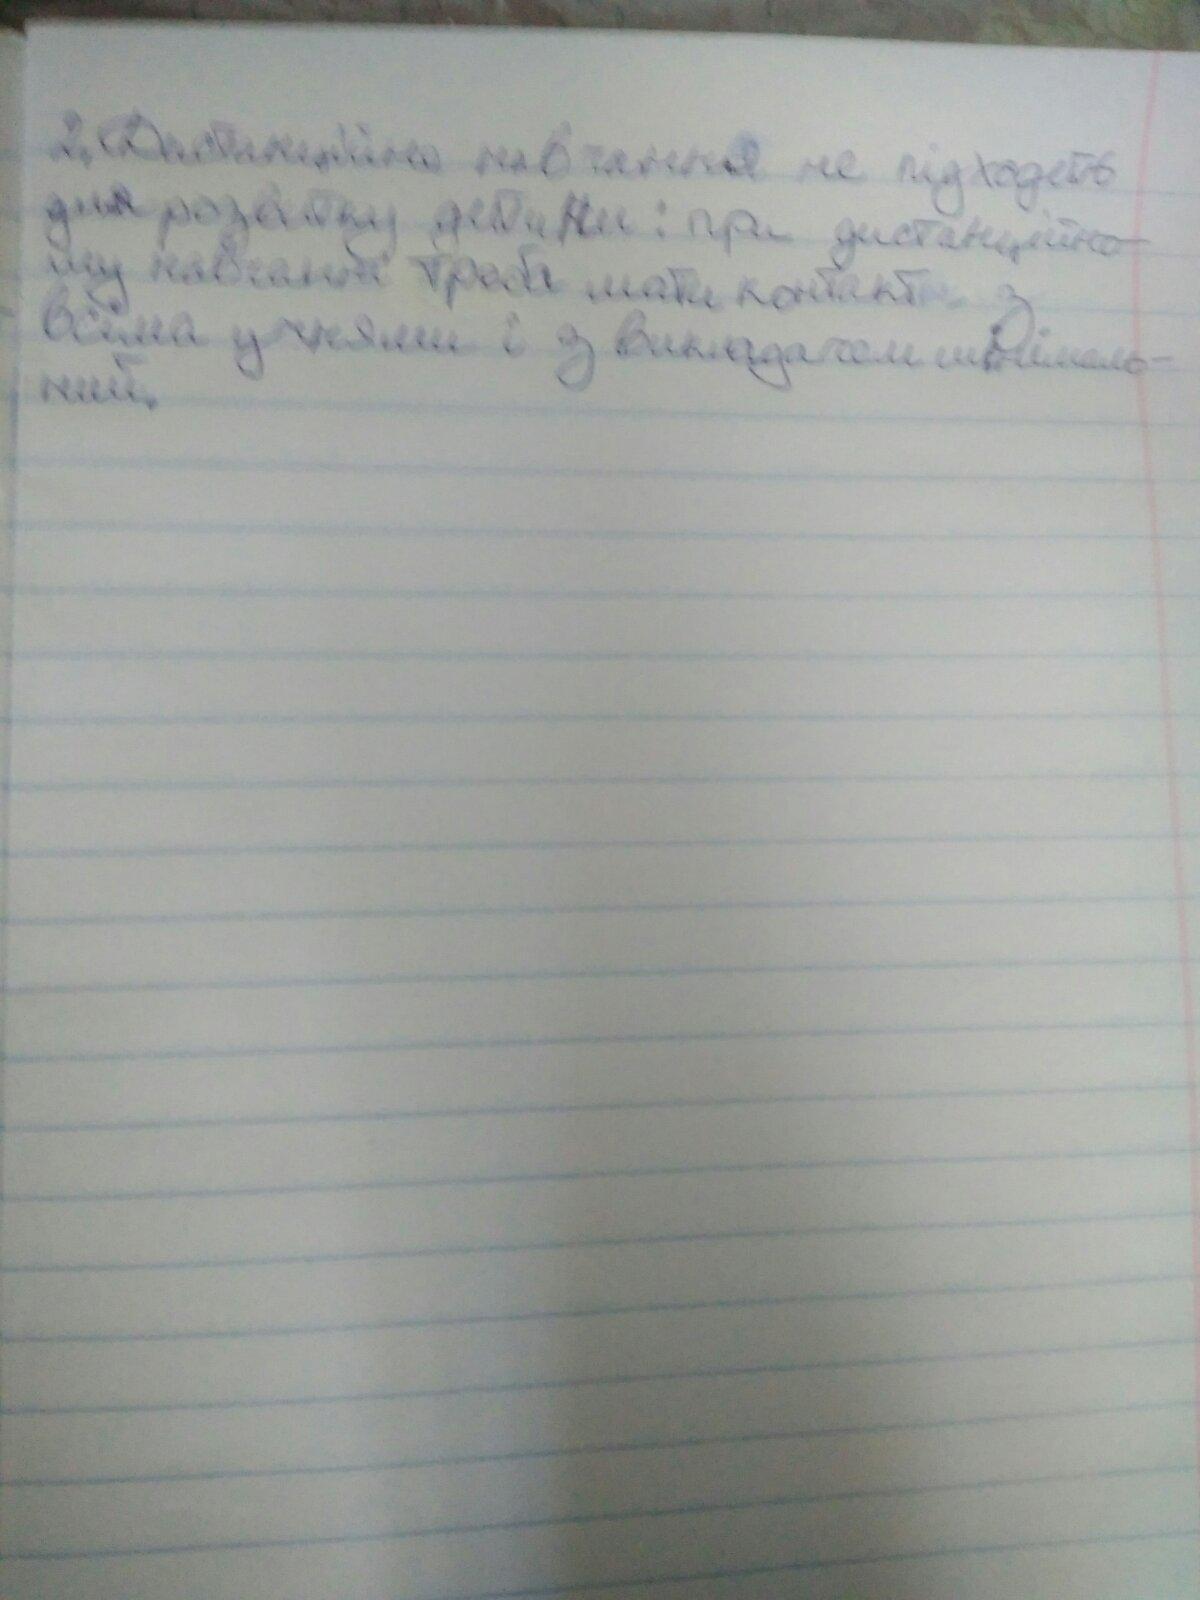 2. Дистанційно навчання не підходеть
для розвітку детини: при дистанційно-
му навчанні треба мати контакт з
всіма учнями і з викладачом
ний.